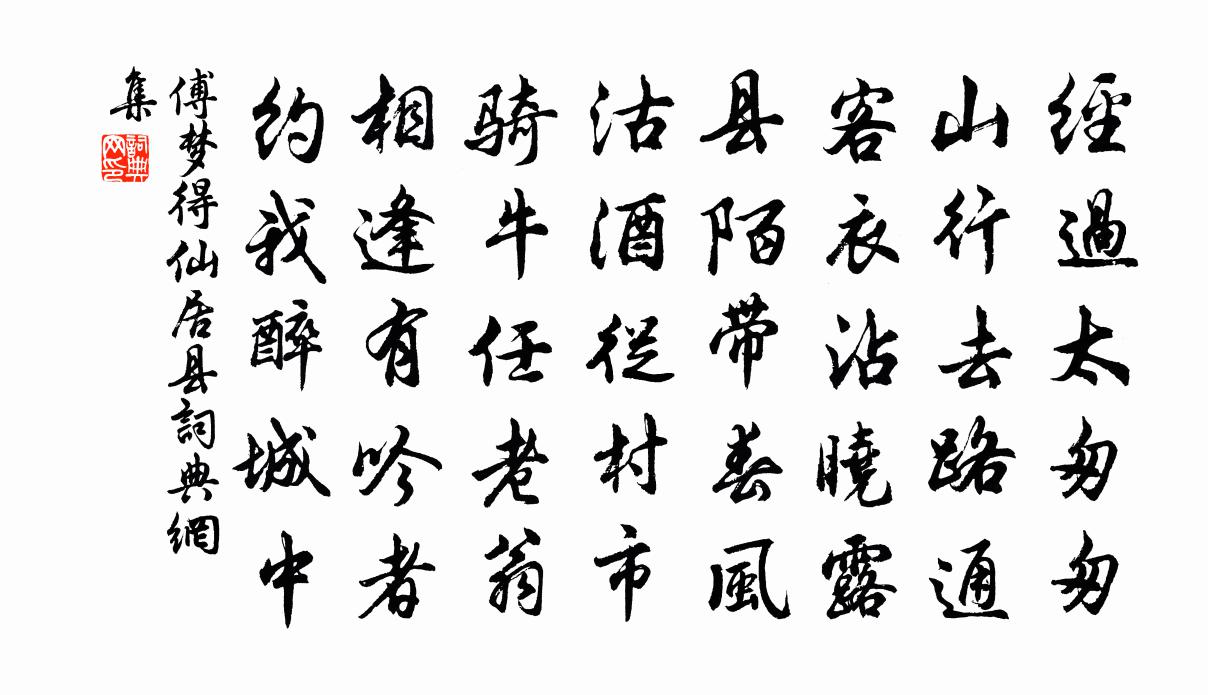 經過太匆匆
山行去路通
客衣沾曉露
县陌带春風
沽酒從村市
騎牛任老翁
相逢有吟者
约我醉城中
傅梦得仙居县詞典網
集
詞典网印